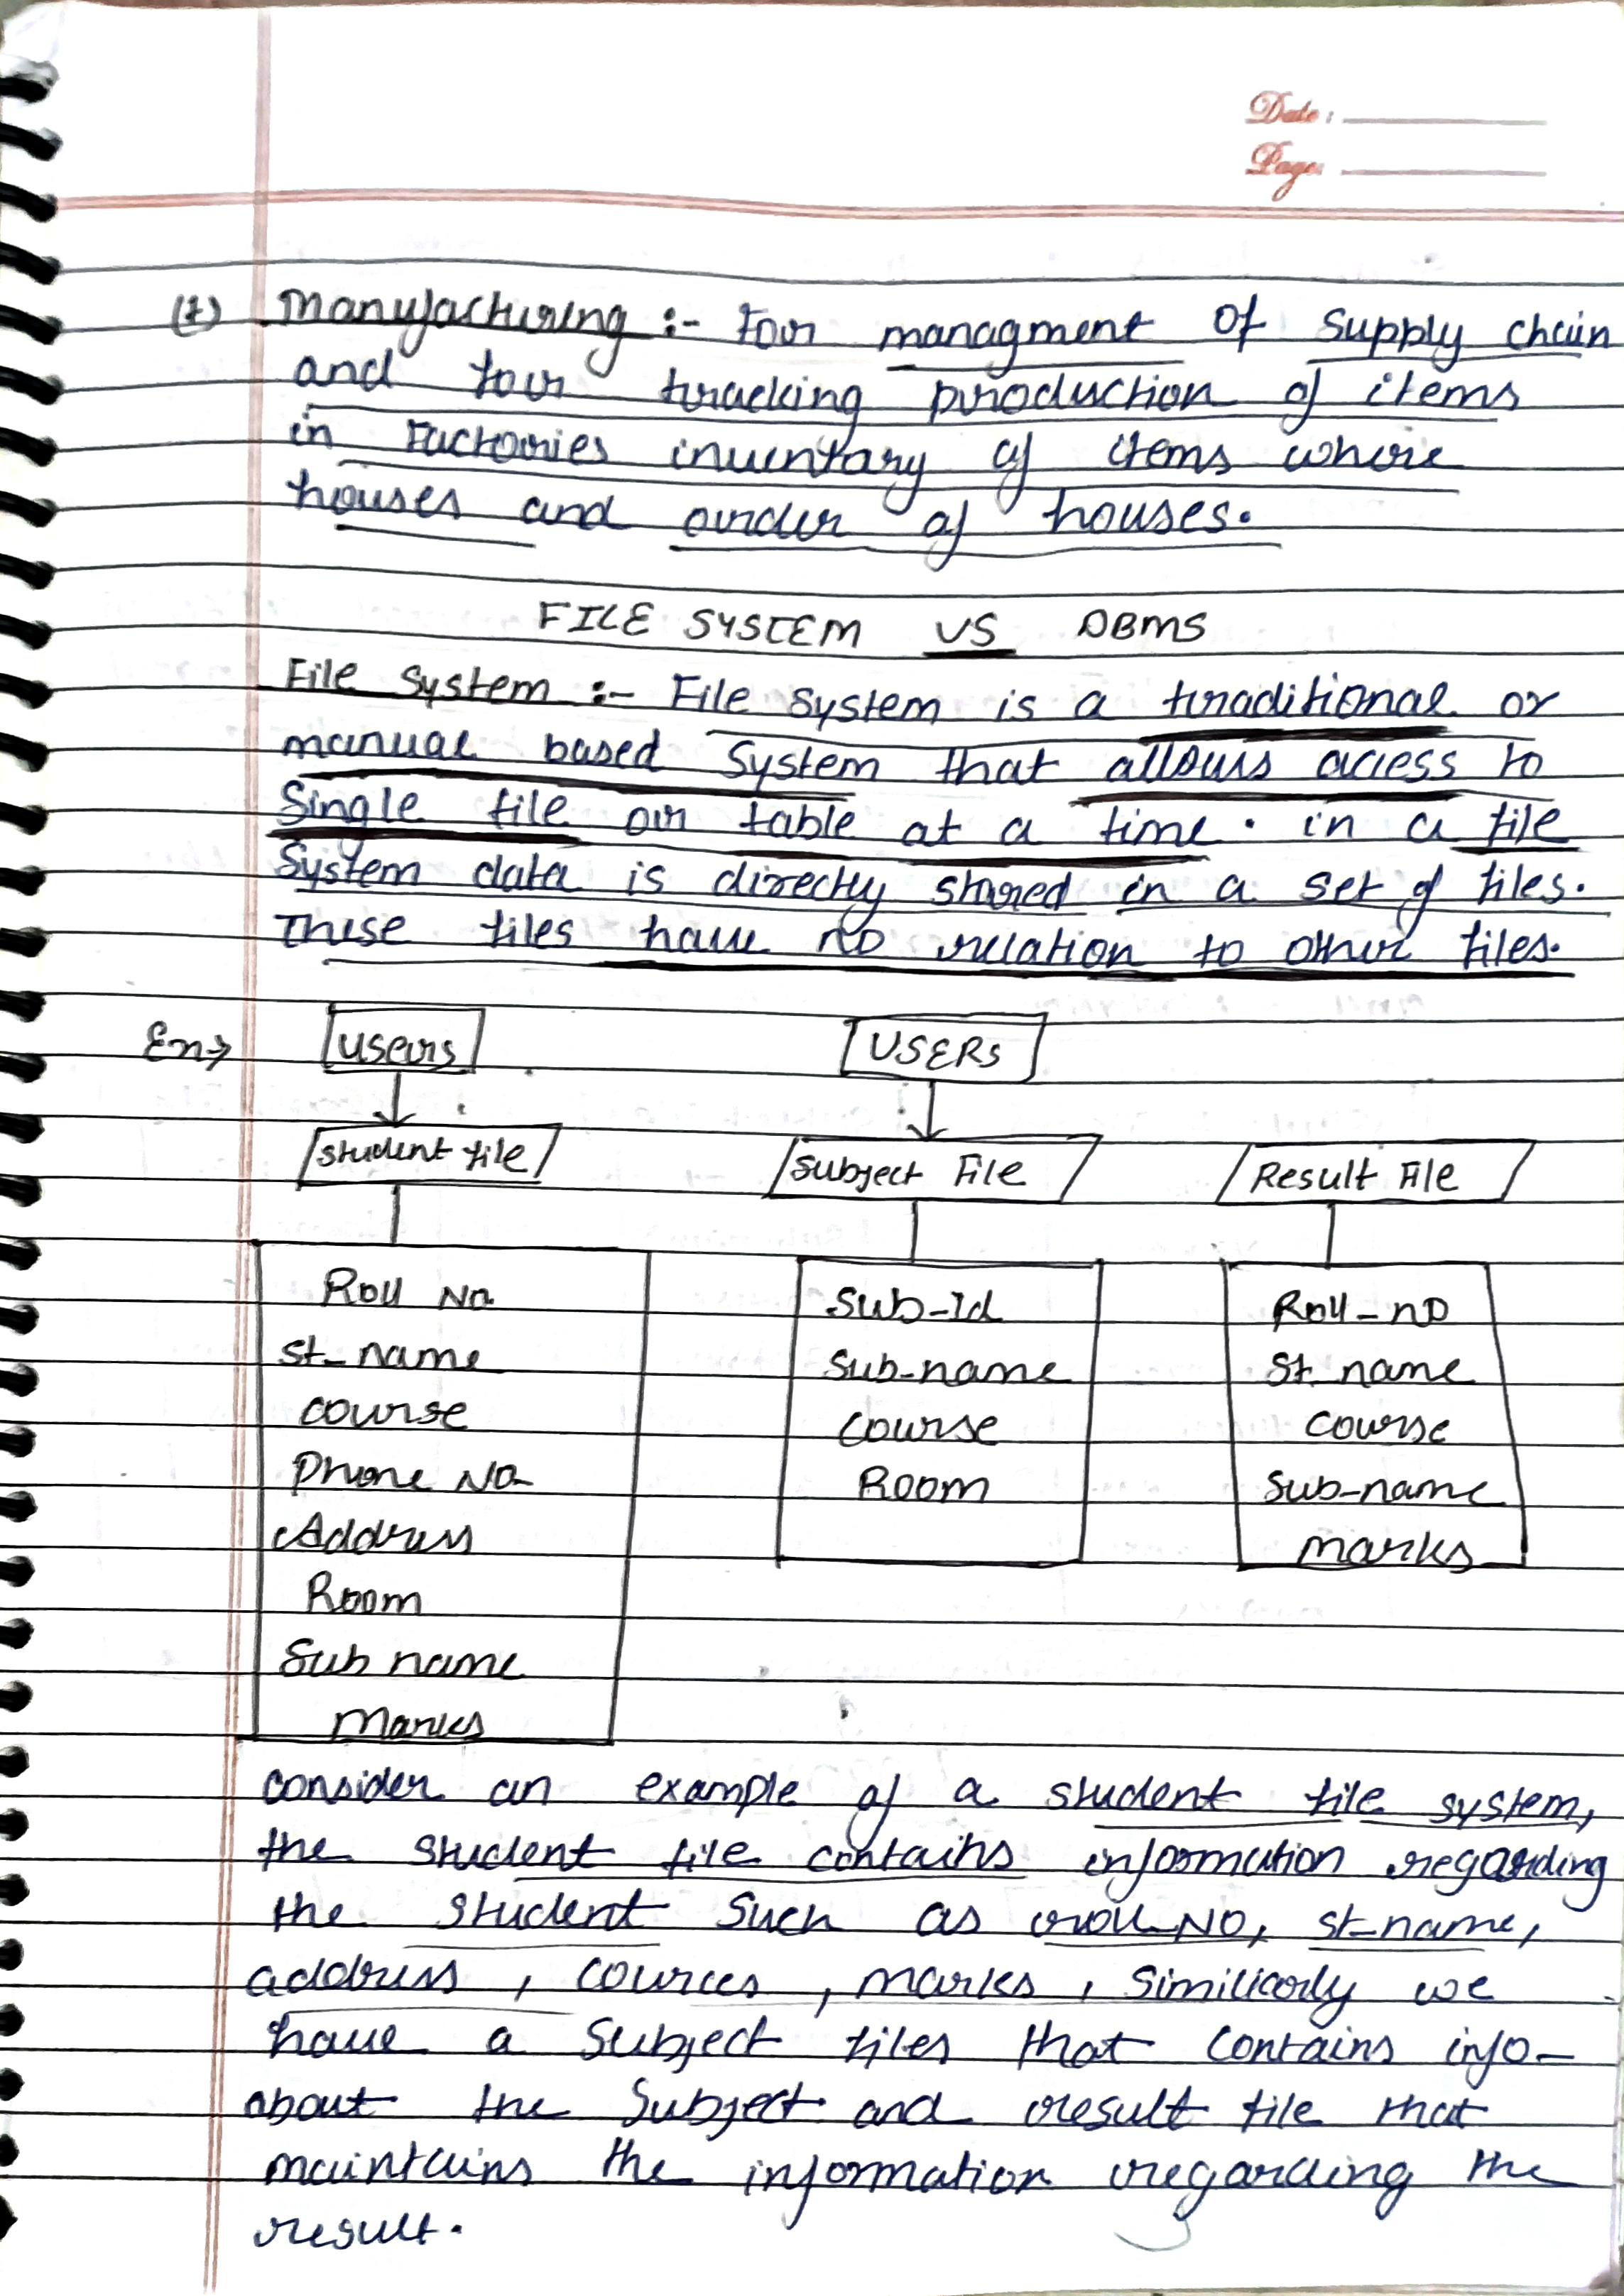 Date:
Page:
(7) Manufacturing :- For managment of supply chain
and for tracking production of items
in Factories inventary of items where
houses and order of houses.
FILE SYSTEM VS DBMS
File System :- File System is a traditional or
manual based System that allows access to
Single file or table at a time. in a file
System data is directly stored in a set of files.
These files have no relation to other files.
Ex→ Users USERs
Student file Subject File Result File
Roll No Sub-Id Roll-no
St_name Sub-name St_name
course course course
Phone No Room Sub-name
Address marks
Room
Sub name
Marks
consider an example of a student file system,
the student file contains information regarding
the student such as roll_NO, st-name,
address, cources, marks, similiarly we
have a subject files that contains info-
about the subject and result file that
maintains the information regarding the
result.